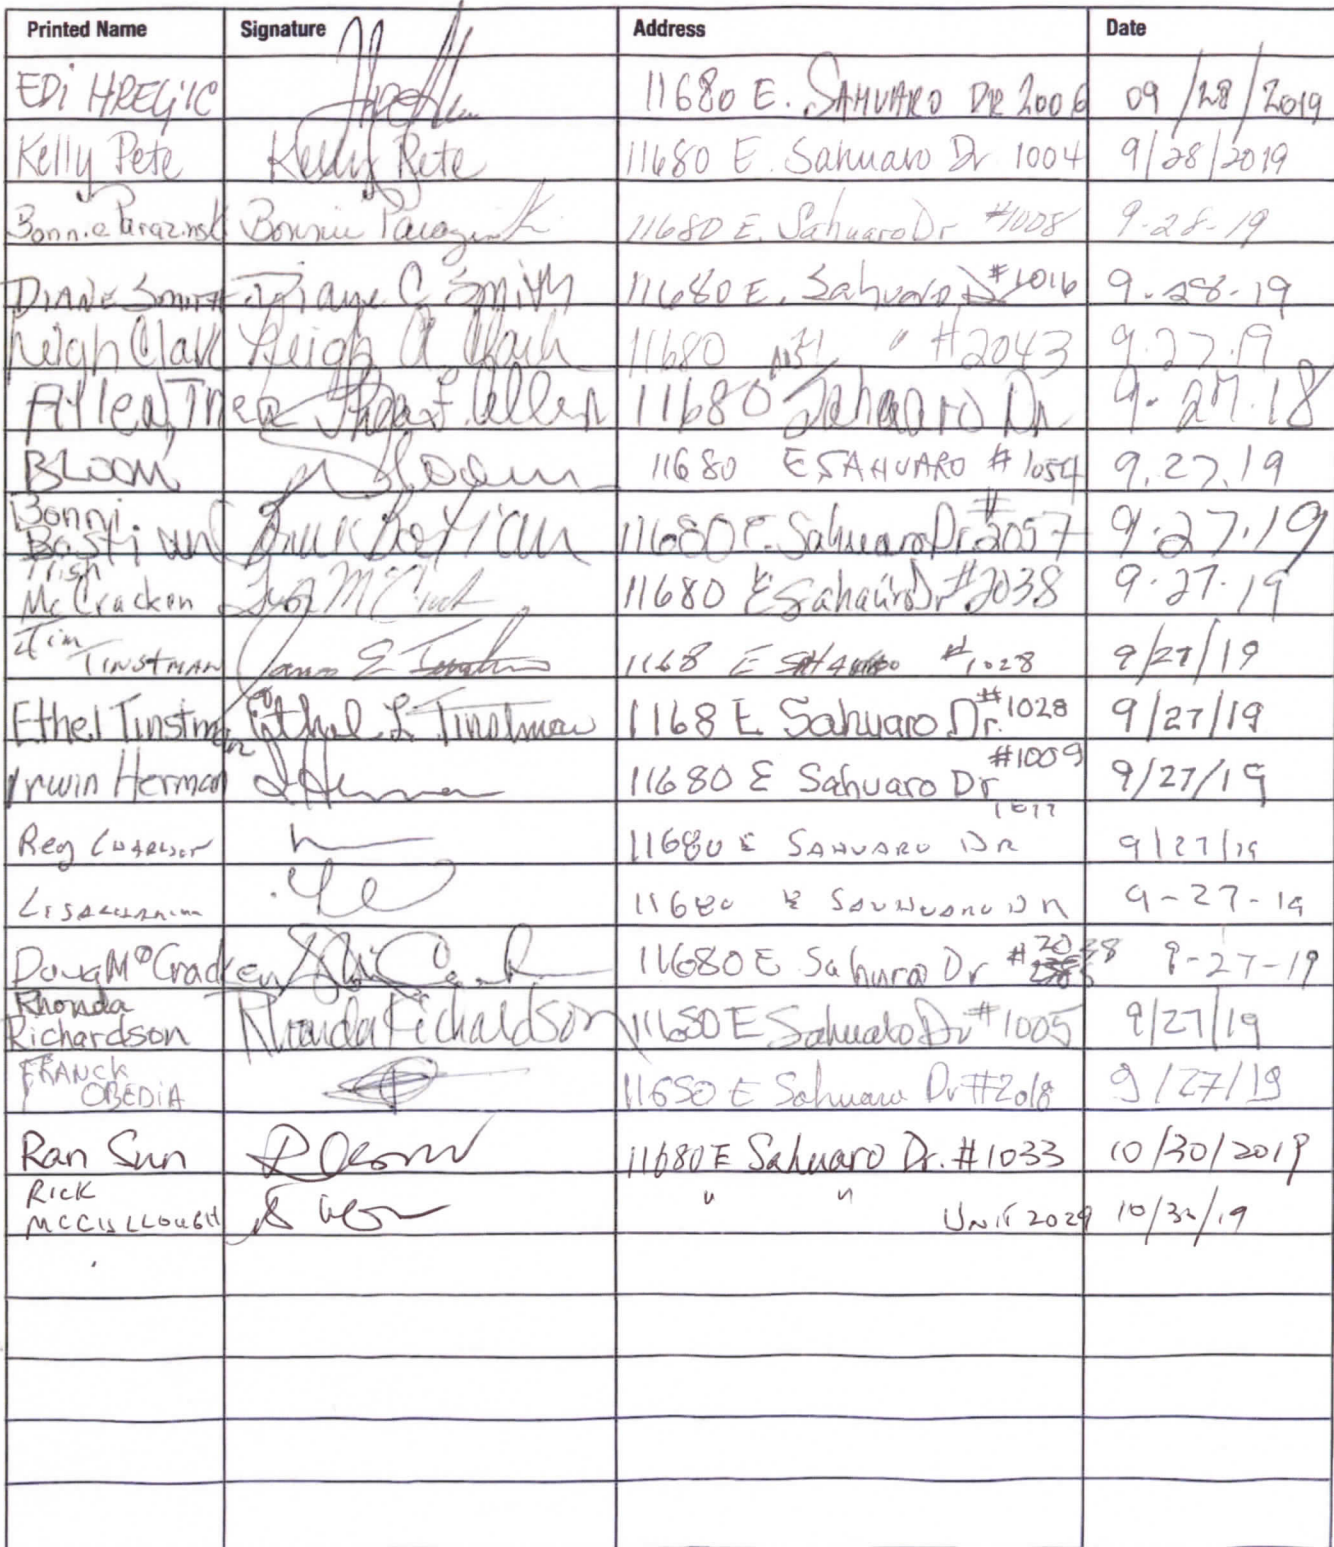 Printed Name Signature Address Date
EDi HREGIC 11680 E. SAHUARO DR 2006 09/28/2019
Kelly Pete Kelly Pete 11680 E. Sahuaro Dr 1004 9/28/2019
Bonnie Parazinsk Bonnie 11680 E. Sahuaro Dr #1008 9-28-19
DIANE Smith Diane C Smith 11680 E. Sahuaro Dr #1016 9-28-19
Leigh Clark Leigh A Clark 11680 " #2043 9.27.19
Allen, Thea Thea F. Allen 11680 Sahuaro Dr 9.27.18
BLOOM Bloom 11680 E SAHUARO #1054 9.27.19
Bonni
Bastian Bastian 11680 E. Sahuaro Dr. #2057 9.27.19
Trish
McCracken 11680 E Sahauro Dr #2038 9.27.19
Jim
TINSTMAN James E 1168 E #1028 9/27/19
Ethel Tinstman Ethel L Tinstman 1168 E Sahuaro Dr. #1028 9/27/19
Irwin Herman 11680 E Sahuaro Dr #1009 9/27/19
Reg 11680 E SAHUARO DR 9/27/19
11680 E 9-27-19
Doug McCracken 11680 E Sahuro Dr #2038 9-27-19
Rhonda
Richardson Rhonda Richardson 11680 E Sahuaro Dr #1005 9/27/19
FRANCK
OBEDiA 11680 E Sahuaro Dr #2018 9/27/19
Ran Sun 11680 E Sahuaro Dr. #1033 10/30/2019
RICK " "
MCCULLOUGH UNIT 2029 10/30/19